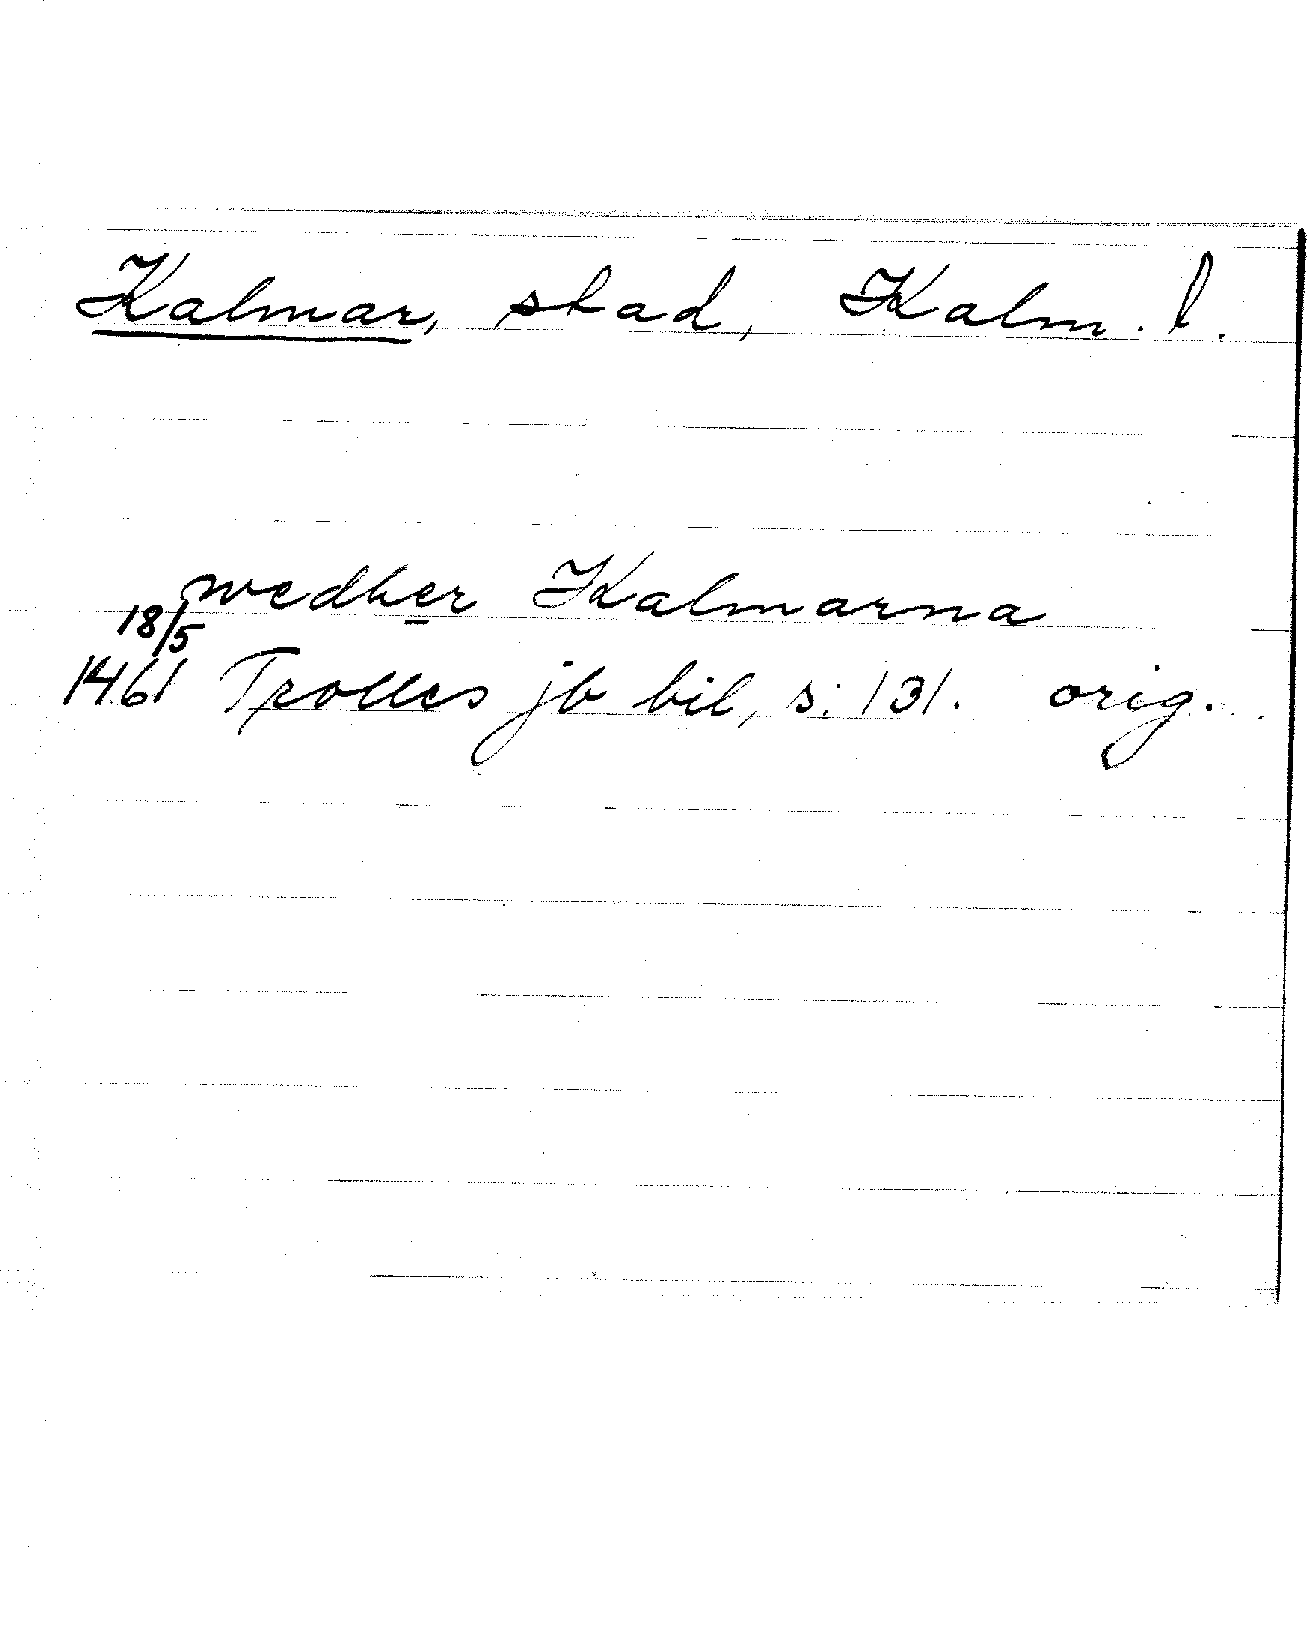 Kalmar, stad, Kalm. l.
wedher Kalmarna
18/5
1461 Trolles jb bil, s. 131. orig.